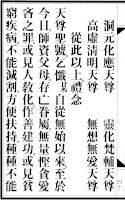 洞元化應天尊　靈化梵輔天尊
高虛清明天尊　無想無愛天尊
從此以上禮念
天尊聖號乞懺某自從無始以來至於
今日師資父母存亡眷屬無量慳貪愛
吝之罪或見人教化作善建功或見貧
窮疾病不能減割方便扶持種種不能